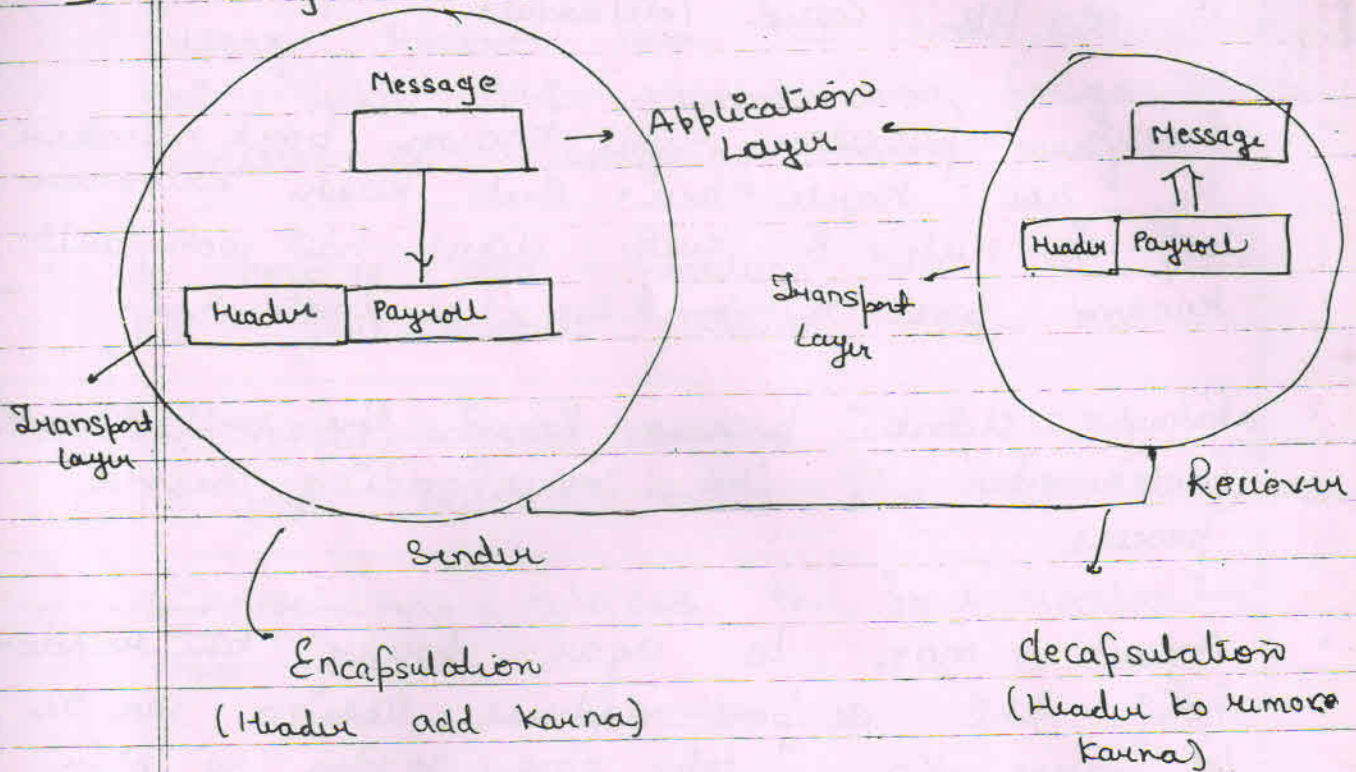 Message
Application
Layer
Message
Header Payroll
Header Payroll
Transport
Layer
Transport
layer
Reciever
Sender
Encapsulation
decapsulation
(Header add karna)
(Header ko remove
karna)